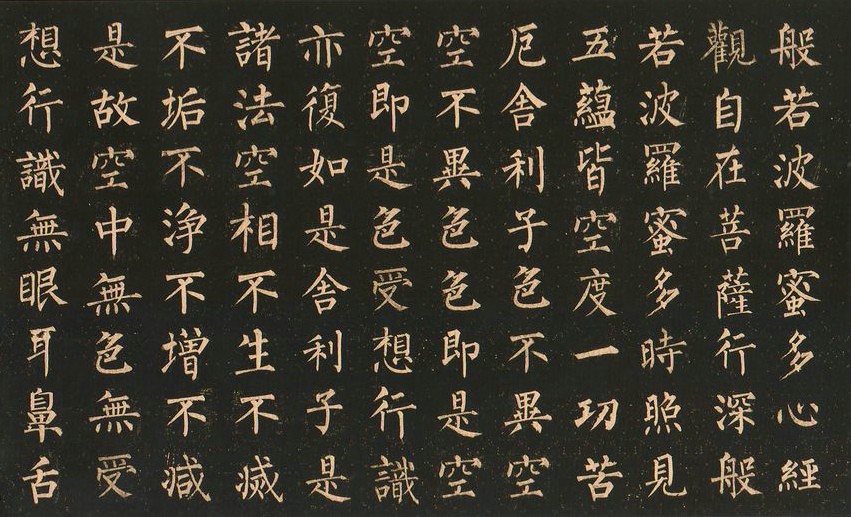 般若波羅蜜多心經
觀自在菩薩行深般
若波羅蜜多時照見
五蘊皆空度一切苦
厄舍利子色不異空
空不異色色即是空
空即是色受想行識
亦復如是舍利子是
諸法空相不生不滅
不垢不浄不增不減
是故空中無色無受
想行識無眼耳鼻舌